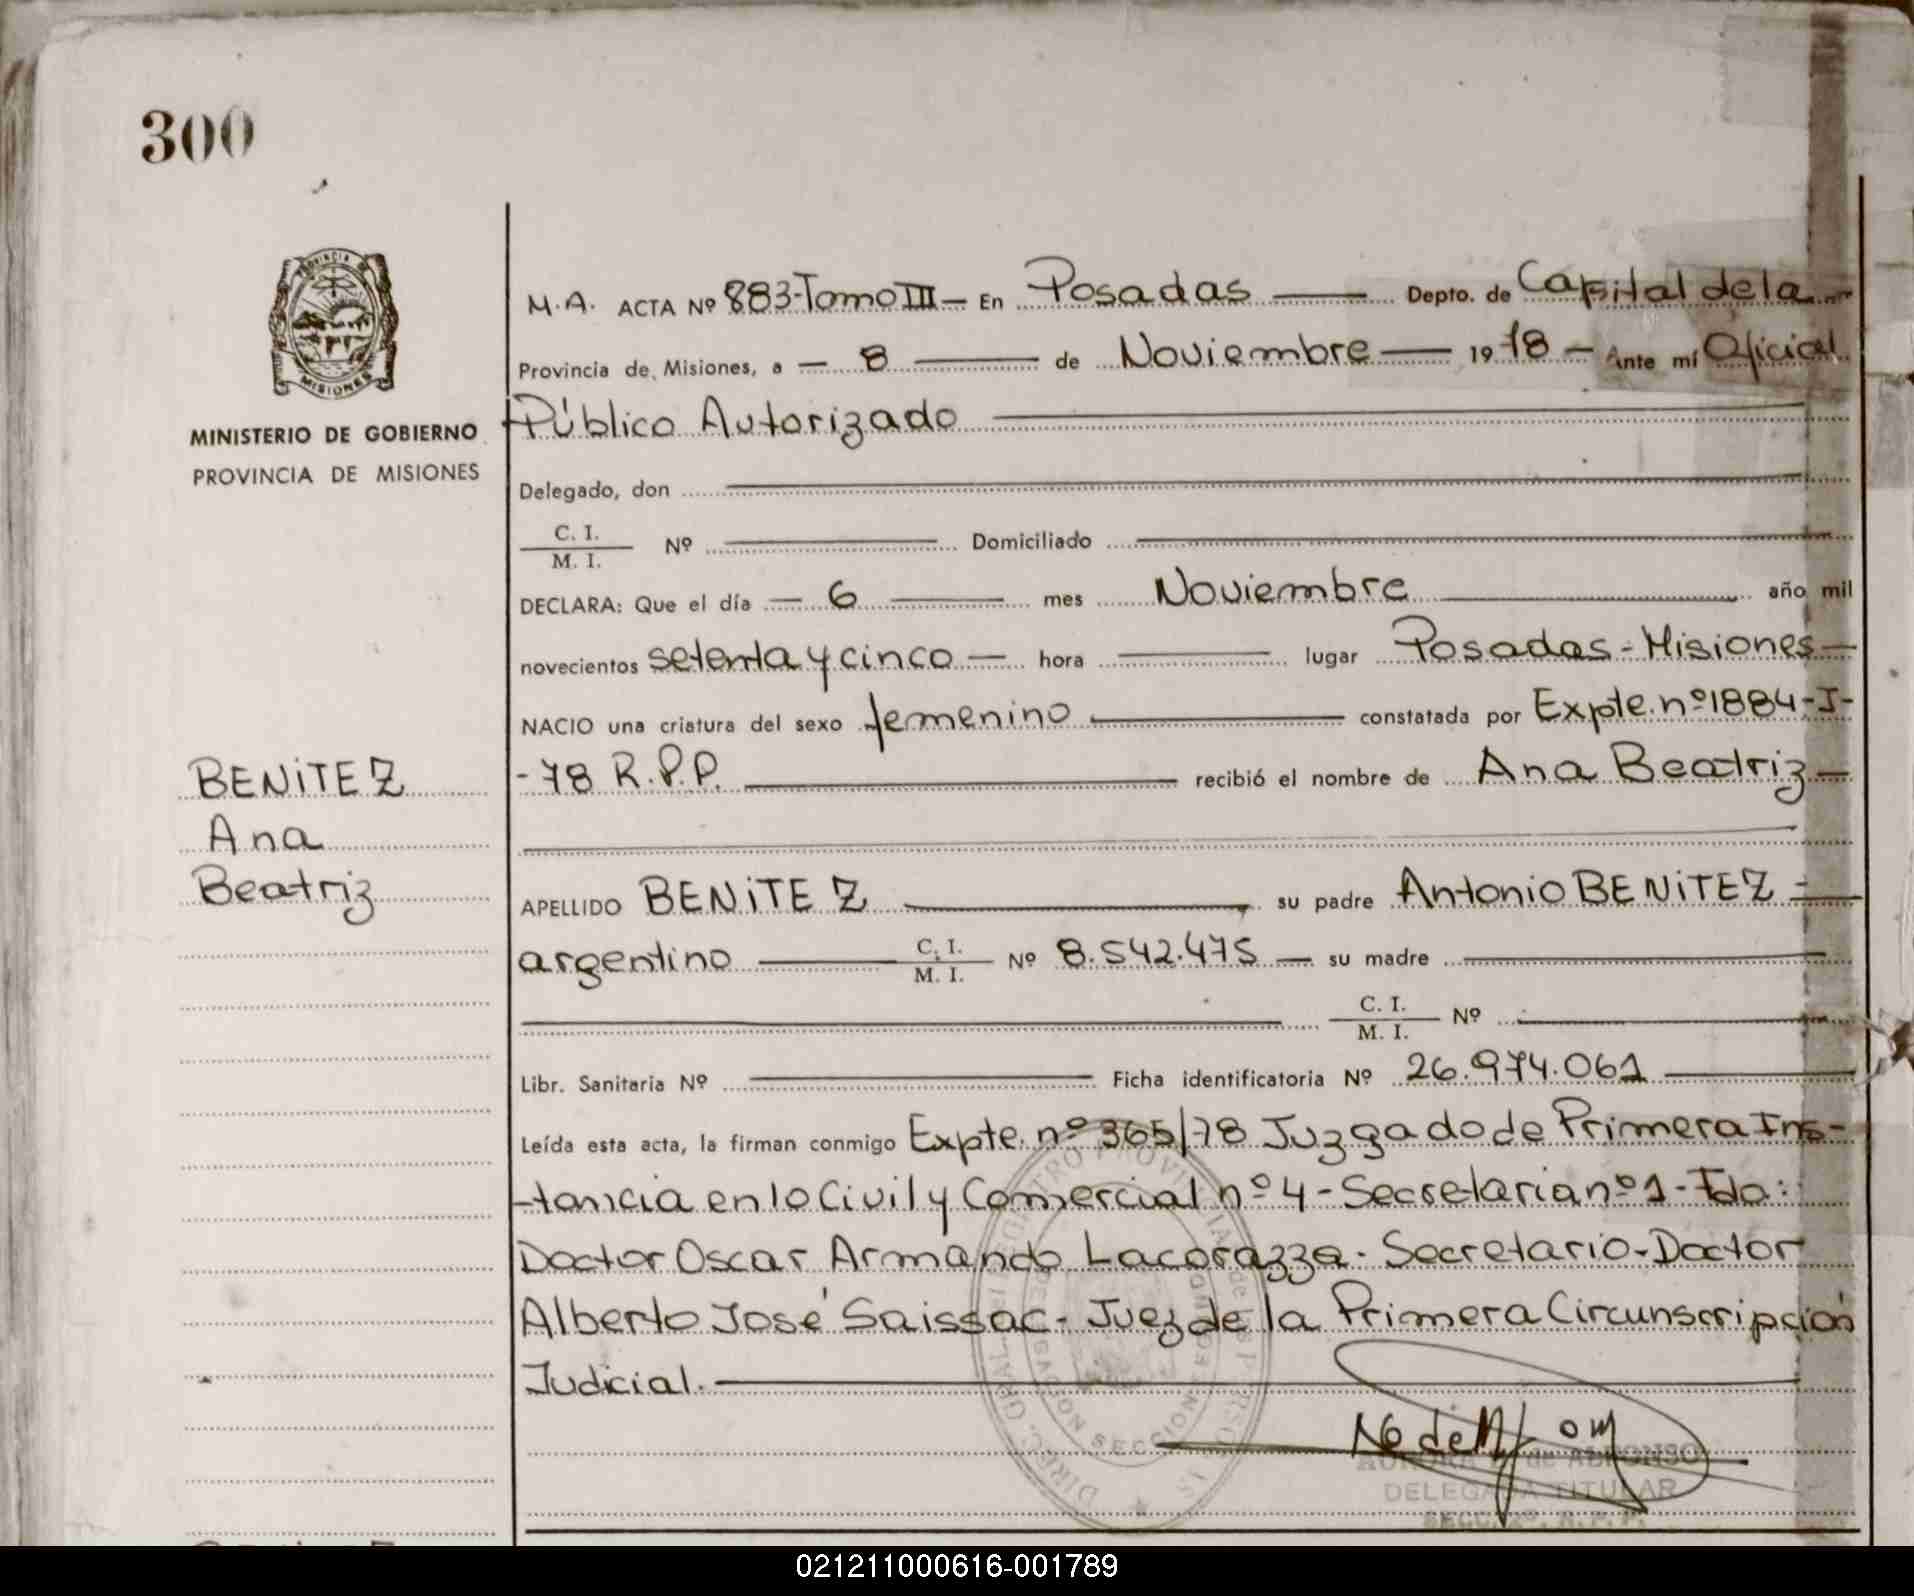 300
PROVINCIA DE
MISIONES
MINISTERIO DE GOBIERNO
PROVINCIA DE MISIONES
BENITEZ
Ana
Beatriz
M.A. ACTA Nº 883-Tomo III — En Posadas — Depto. de Capital de la
Provincia de Misiones, a — 8 — de Noviembre — 1978 — Ante mí Oficial
Público Autorizado
Delegado, don
C. I. / M. I. Nº Domiciliado
DECLARA: Que el día — 6 — mes Noviembre año mil
novecientos setenta y cinco — hora — lugar Posadas - Misiones —
NACIO una criatura del sexo femenino — constatada por Expte. nº 1884-I-
-78 R.P.P. — recibió el nombre de Ana Beatriz —
APELLIDO BENITEZ — su padre Antonio BENITEZ -
argentino — C. I. / M. I. Nº 8.542.475 — su madre —
C. I. / M. I. Nº
Libr. Sanitaria Nº — Ficha identificatoria Nº 26.974.061 —
Leída esta acta, la firman conmigo Expte. nº 365/78 Juzgado de Primera Ins-
-tancia en lo Civil y Comercial nº 4 - Secretaria nº 1 - Fdo:
Doctor Oscar Armando Lacorazza - Secretario - Doctor
Alberto José Saissac - Juez de la Primera Circunscripción
Judicial. —
de ALFONSO
DELEGADA TITULAR
021211000616-001789